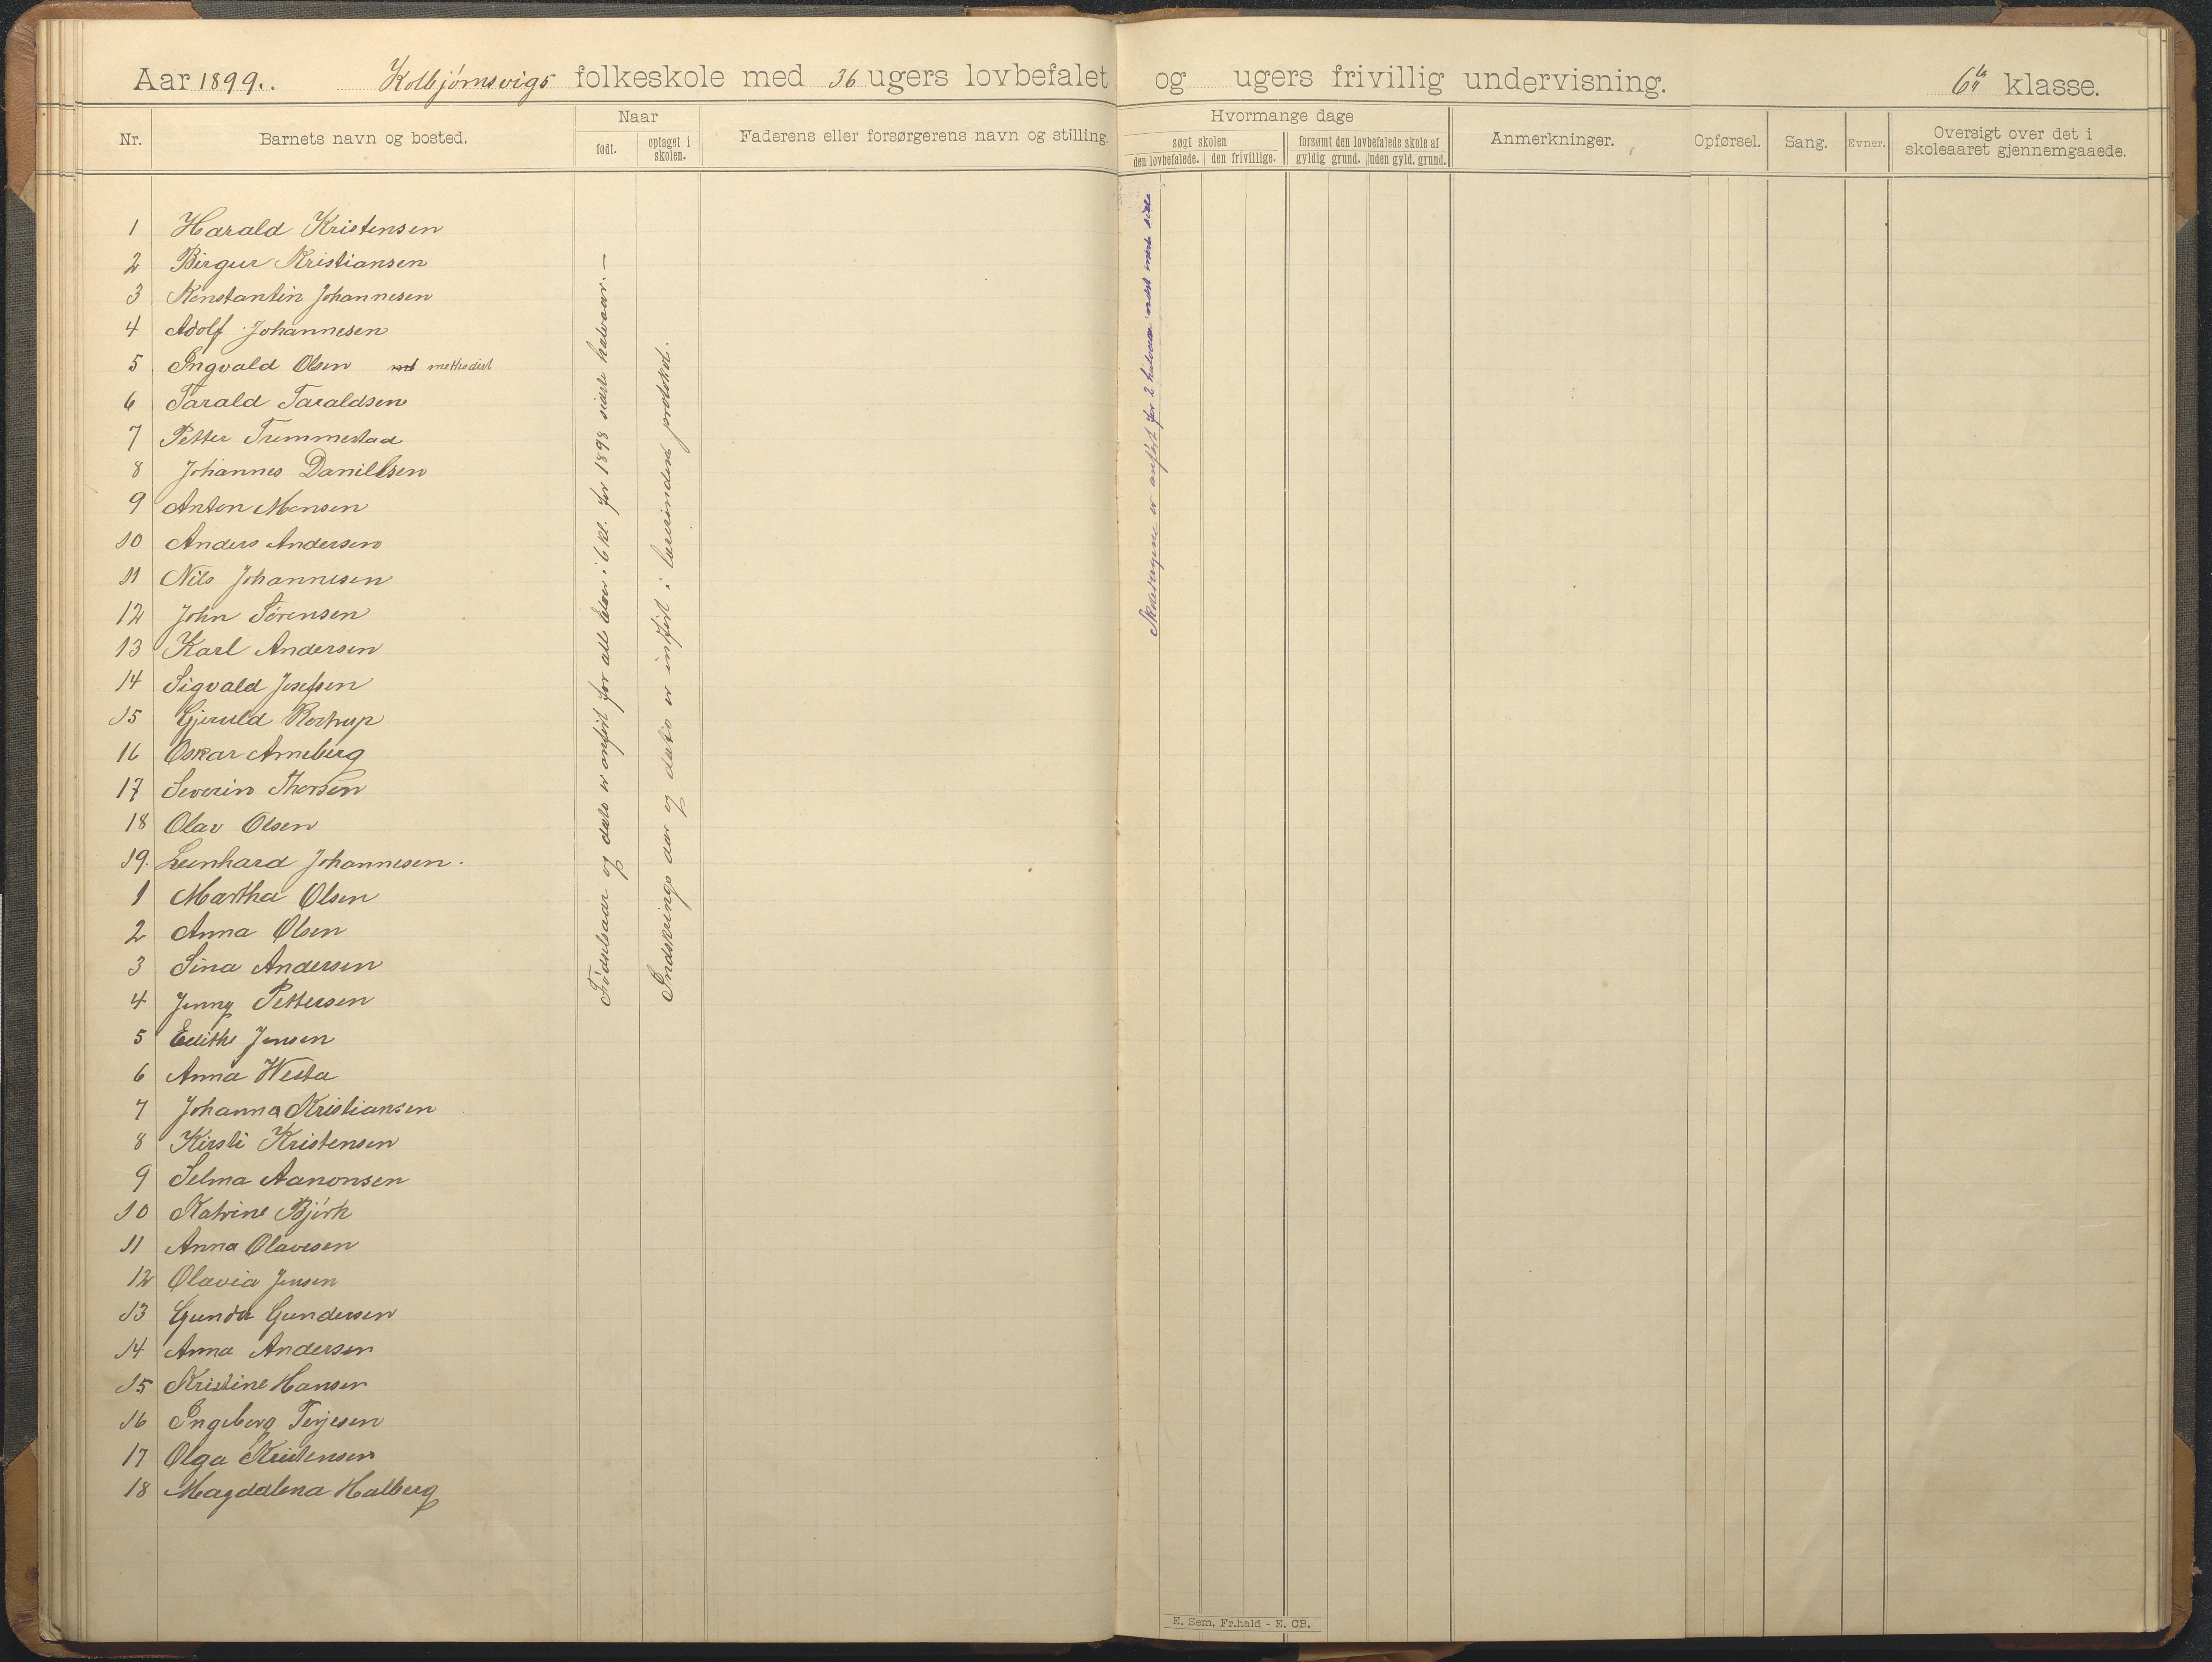 Aar 1899. Kolbjørnsvigs folkeskole med 36 ugers lovbefalet og ugers frivillig undervisning. 6te klasse.
Nr. Barnets navn og bosted. Naar født. optaget i skolen. Faderens eller forsørgerens navn og stilling.
Hvormange dage søgt skolen den lovbefalede. den frivillige. forsømt den lovbefalede skole af gyldig grund. uden gyld. grund. Anmerkninger. Opførsel. Sang. Evner. Oversigt over det i skoleaaret gjennemgaaede.
1 Harald Kristensen
2 Birger Kristiansen
3 Konstantin Johannesen
4 Adolf Johannesen
5 Ingvald Olsen methodist
6 Tarald Taraldsen
7 Petter Trommestad
8 Johannes Daniellsen
9 Anton Monsen
10 Anders Andersen
11 Nils Johannesen
12 John Sørensen
13 Karl Andersen
14 Sigvald Josefsen
15 Gjeruld Rostrup
16 Oskar Arneberg
17 Severin Thorsen
18 Olav Olsen
19. Leenhard Johannesen.
1 Martha Olsen
2 Anna Olsen
3 Sina Andersen
4 Jenny Pettersen
5 Edithe Jensen
6 Anna Westa
7 Johanna Kristiansen
8 Kirsti Kristensen
9 Selma Aanonsen
10 Katrine Bjørk
11 Anna Olavesen
12 Olavia Jensen
13 Gunda Gundersen
14 Anna Andersen
15 Kristine Hansen
16 Ingeborg Terjesen
17 Olga Kristensen
18 Magdalena Halberg
Fødselsaar og dato er anført for alle elever i 6 kl. for 1898 sidste halvaar. —
Indskrivings aar og dato er indført i lærerindens protokol.
Skoledagene er anført for 2 halvaar med side
E. Sem, Fr.hald - E. CB.